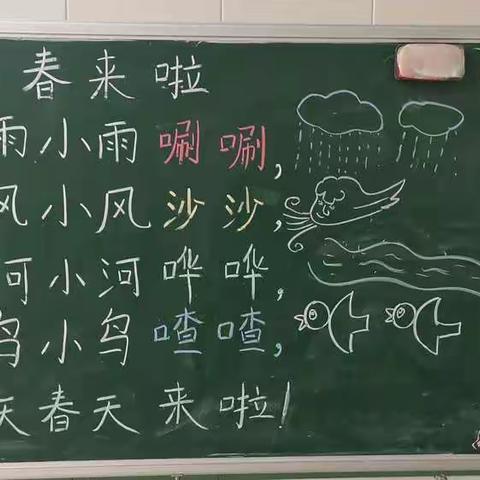 春来啦
雨小雨唰唰,
风小风沙沙,
河小河哗哗,
鸟小鸟喳喳,
天春天来啦!